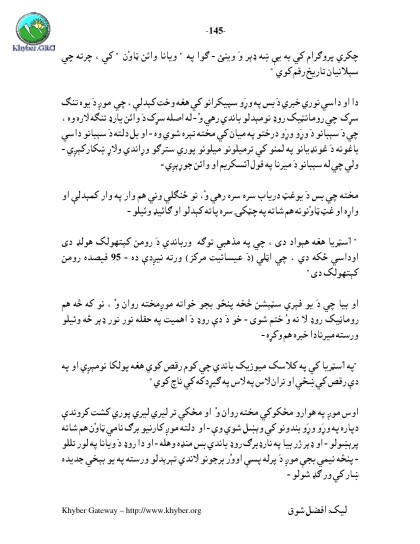 -145-
Khyber.ORG
چکري پروګرام کي به يې ښه ډېر و ويني - ګوا په " ويانا وائن ټاؤن " کي ، چرته چې
سېلانيان تاريخ رقم کوي "
دا او داسي نوري خبري د بس په وړو سپيکرانو کي هغه وخت کېدلې ، چې موږ د يوه تنګ
سړک چې رومانټيک روډ نومېدلو باندي رهي وُ - له اصله سړک د وائن يارډ تنګه لاره وه ،
چې د سېبانو د وړو وړو درختو په ميان کي مخته تېره شوې وه - او بل دلته د سېبانو داسي
باغونه د غونډيانو په لمنو کي تر ميلونو ميلونو پوري سترګو وړاندي ولاړ ښکارکېږي -
ولي چې له سېبانو د ميرنا په قول آئسکريم او وائن جوړېږي -
مخته چې بس د يوغټ درياب سره سره رهي وُ، نو ځنګلي ونې هم وار په وار کمېدلې او
واړه او غټ ټاؤنونه هم شاته په چټکۍ سره پاته کېدلو او ګائيډ وئيلو -
" آسټريا هغه هېواد دی ، چې په مذهبي توګه ورباندي د رومن کېتهولک هولډ دی
اوداسي ځکه دي ، چې اټلي (د عيسائيت مرکز) ورته نېږدې ده - 95 فيصده رومن
کېتهولک دي "
او بيا چې د يو فېري سټېشن څخه پنځو بجو خواته موږ مخته روان وُ ، نو که څه هم
رومانټيک روډ لا نه وُ ختم شوی - خو د دې روډ د اهميت په حقله نور نور ډېر څه وئيلو
ورسته ميرنا دا خبره هم وکړه -
"په آسټريا کي په کلاسک ميوزيک باندي چې کوم رقص کوي هغه پولکا نومېږي او په
دې رقص کي ښځي او نران لاس په لاس په ګيډ که کي ناچ کوي "
اوس موږ په هوارو مځکوکي مخته روان وُ او مځکي تر ليري ليري پوري کشت کروندې
دپاره په وړو وړو بندونو کي وېشل شوې وې - او دلته موږ کارنيو برګ نامي ټاؤن هم شاته
پرېښولو - او ډېر ژر بيا په نارډ برګ روډ باندي بس منډه وهله - او دا روډ د ويانا په لور تللو
- پنځه نيمي بجې موږ د پرله پسې اوؤر برجونو لاندي تېرېدلو ورسته په يو بېخي جديده
ښار کي ورګډ شولو -
Khyber Gateway – http://www.khyber.org
ليک: افضل شوق